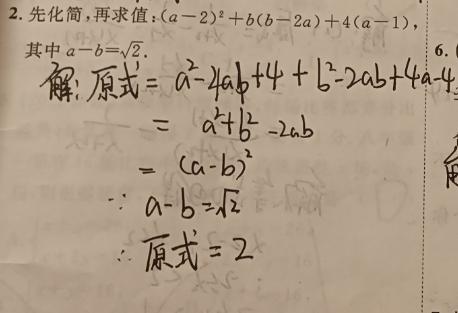 2. 先化简,再求值:(a-2)²+b(b-2a)+4(a-1),
其中 a-b=√2.
6.
解:原式= a²-4ab+4+b²-2ab+4a-4
= a²+b²-2ab
= (a-b)²
∵ a-b=√2
∴ 原式=2